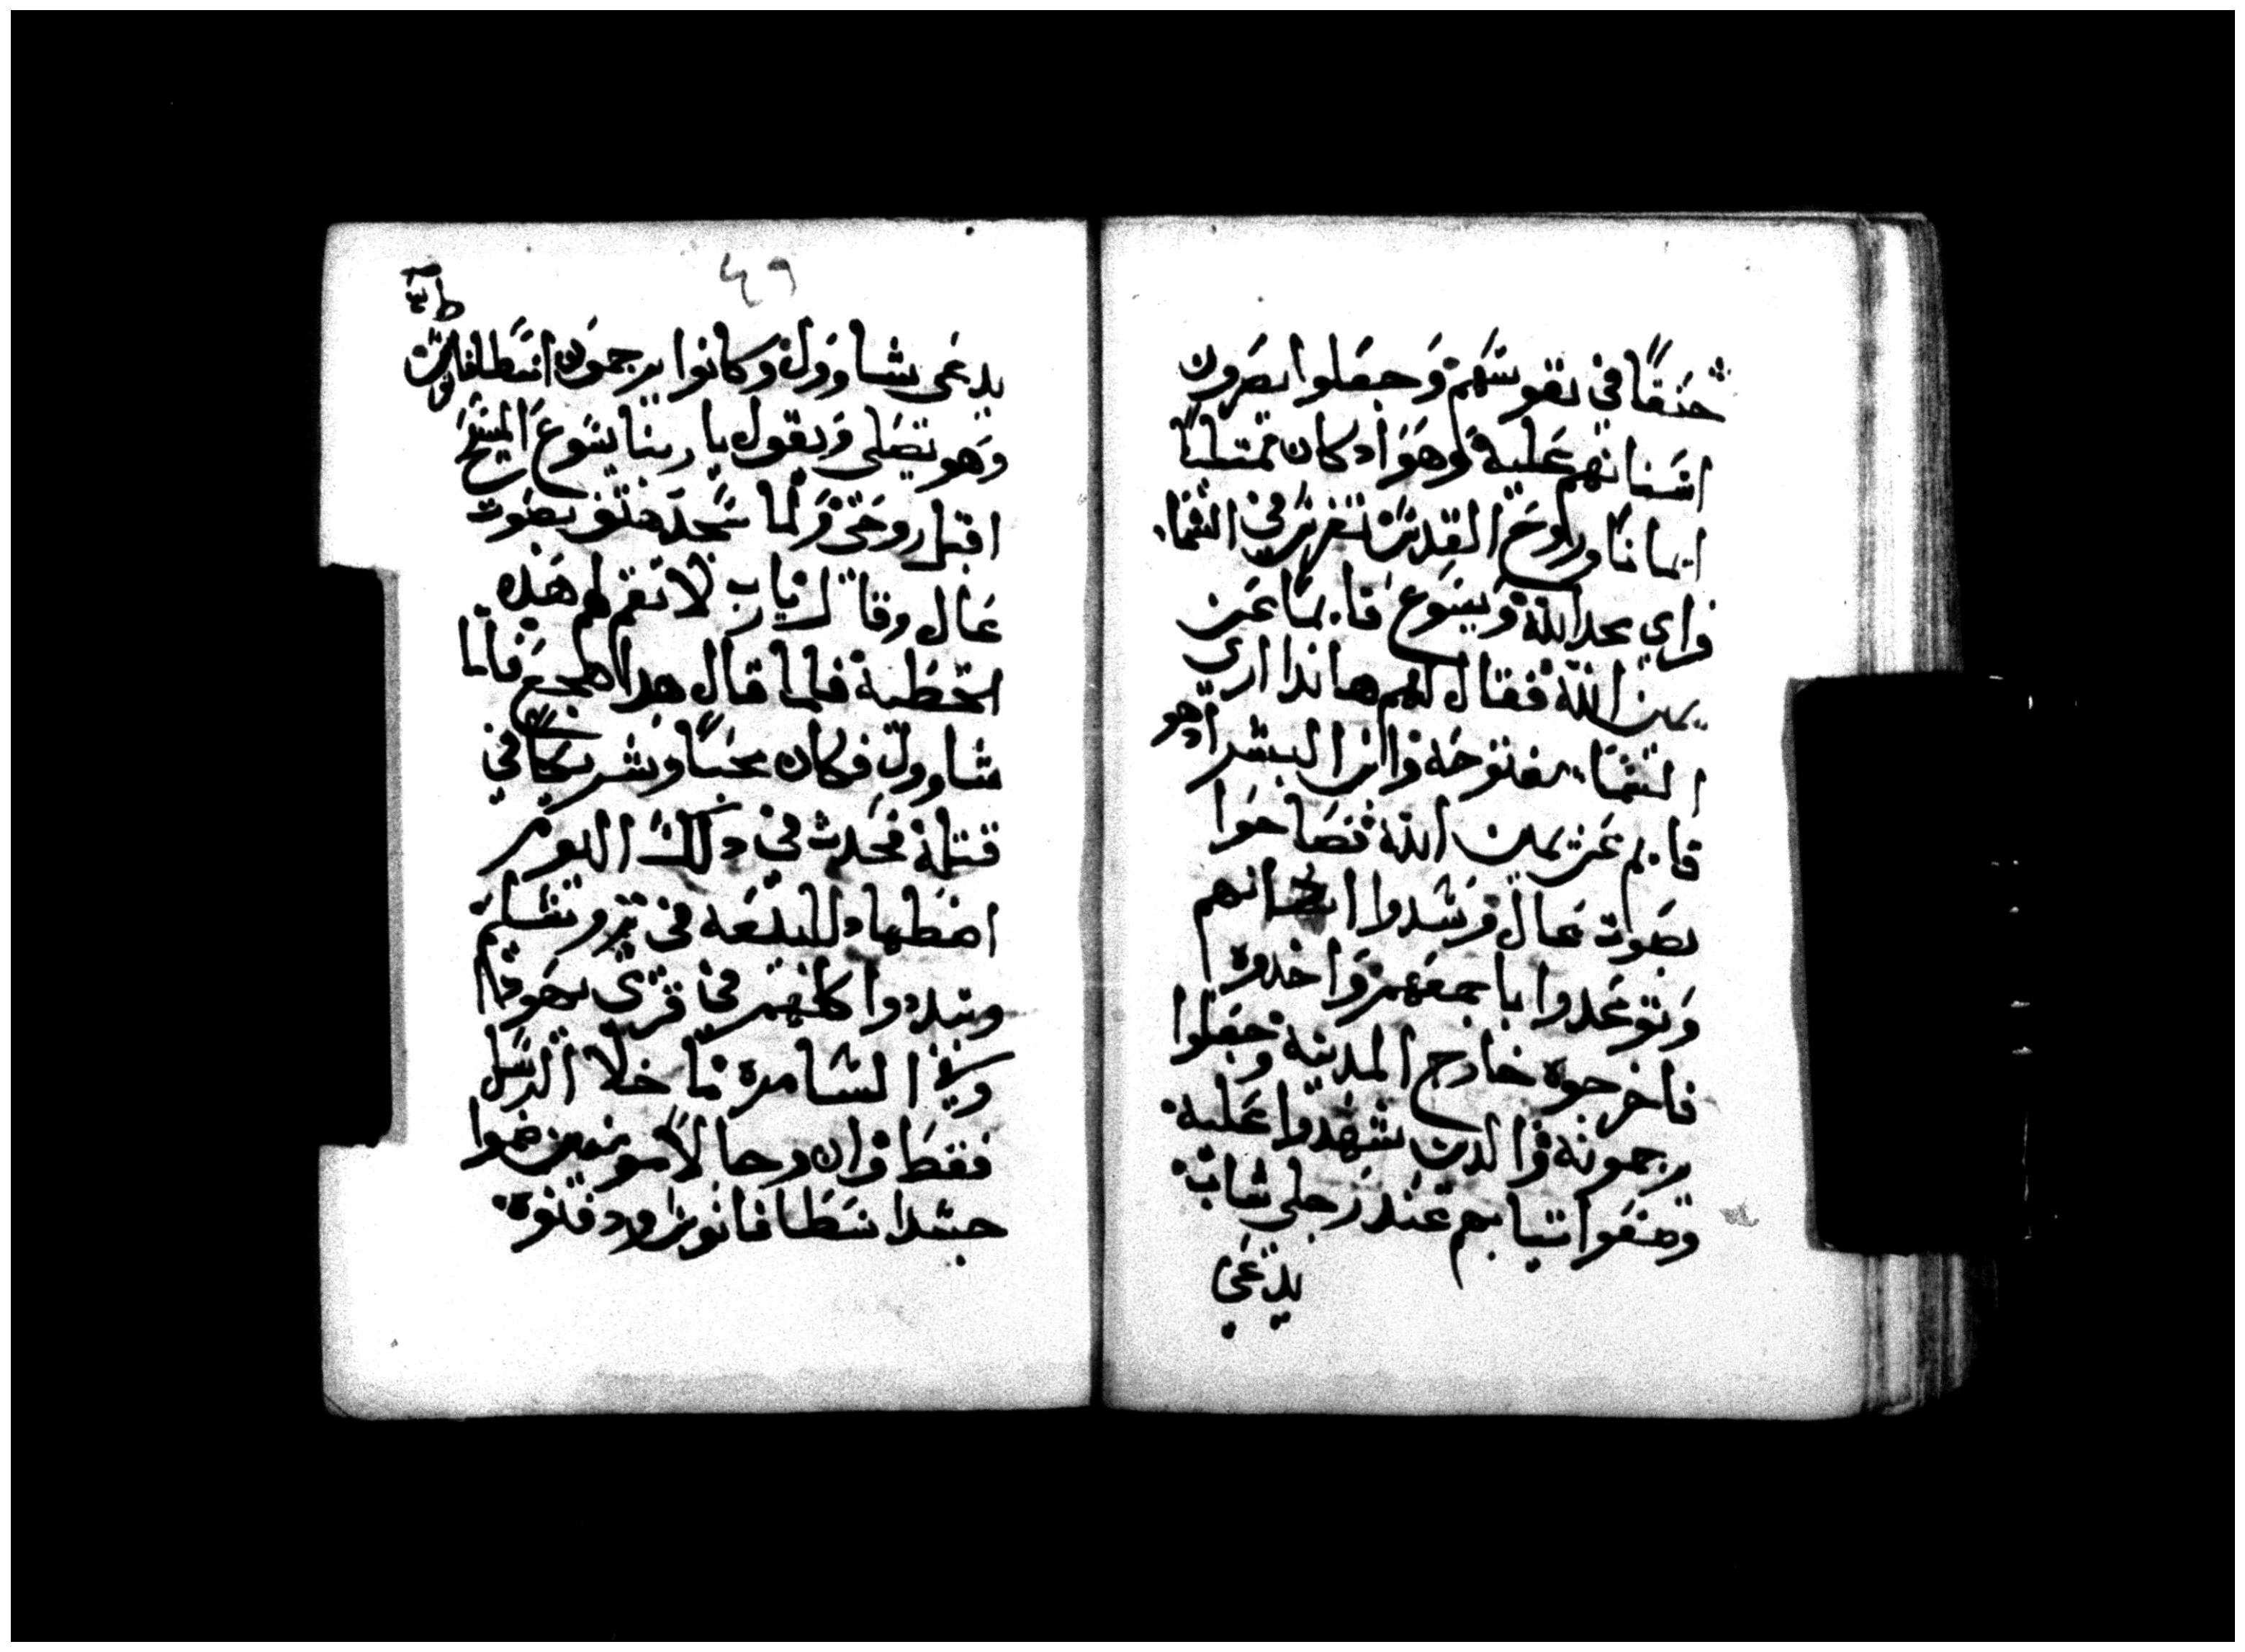 حنقًا في نفوسهم وجعلوا يصرون
اسنانهم عليه وهو اد كان ممتليًا
ايمانًا وروح القدس تفرس في السما
فراي مجد الله ويسوع قايمًا عن
يمين الله فقال لهم هاندا اري
السما مفتوحه وابن البشر هو
قايم عن يمين الله فصاحوا
بصوت عال وشدوا ادانهم
وتوعدوا باجمعهم واخدوه
فاخرجوه خارج المدينه وجعلوا
يرجمونه والدين شهدوا عليه
وضعوا تيابهم عند رجلي شاب
يدعي
٤٩
يدعى شاوول وكانوا يرجمون اسطافانوس
وهو يصلى ويقول يا ربنا يسوع المسيح
اقبل روحي ولما سجد هتف بصوت
عال وقال يارب لا تقم لهم هذه
الخطية فلما قال هدا هجع فاما
شاوول فكان محبًا وشريكًا في
قتله فحدث في دلك اليوم
اضطهاد للبيعه في يروشليم
وتبددوا كلهم في قرى يهودا
وفي السامرة ما خلا الرسل
فقط وان رجالاً مومنين ضموا
جسد اسطافانوس ودفنوه